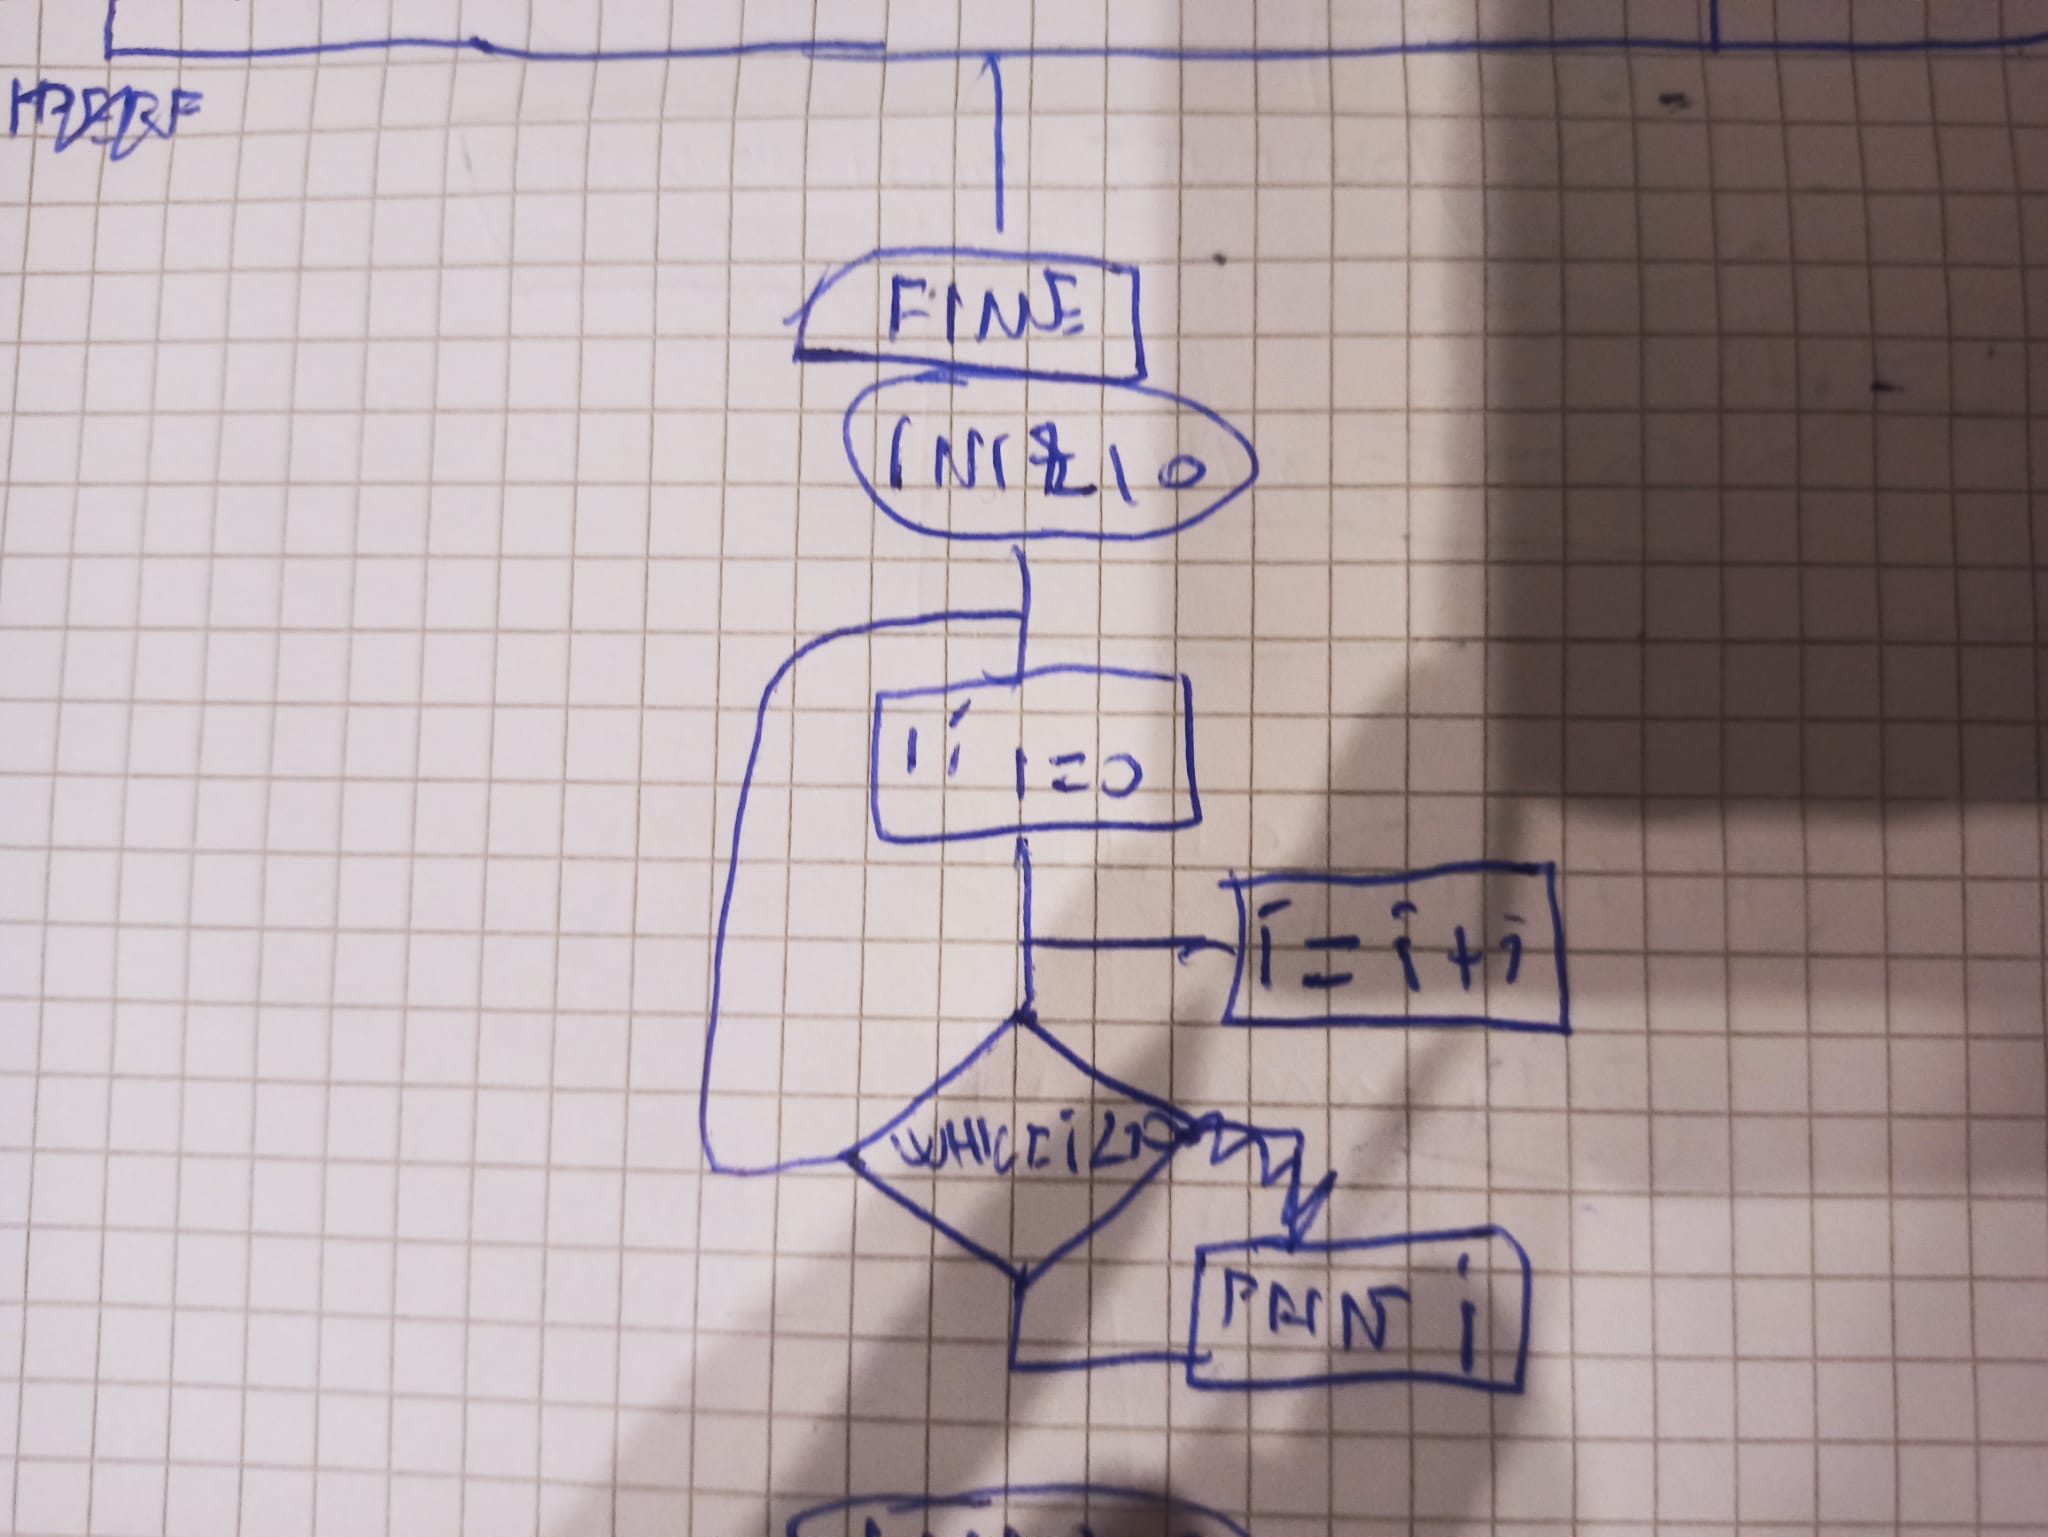 FINE
INIZIO
i i=0
i = i + i
WHILE i<10
PRIN i